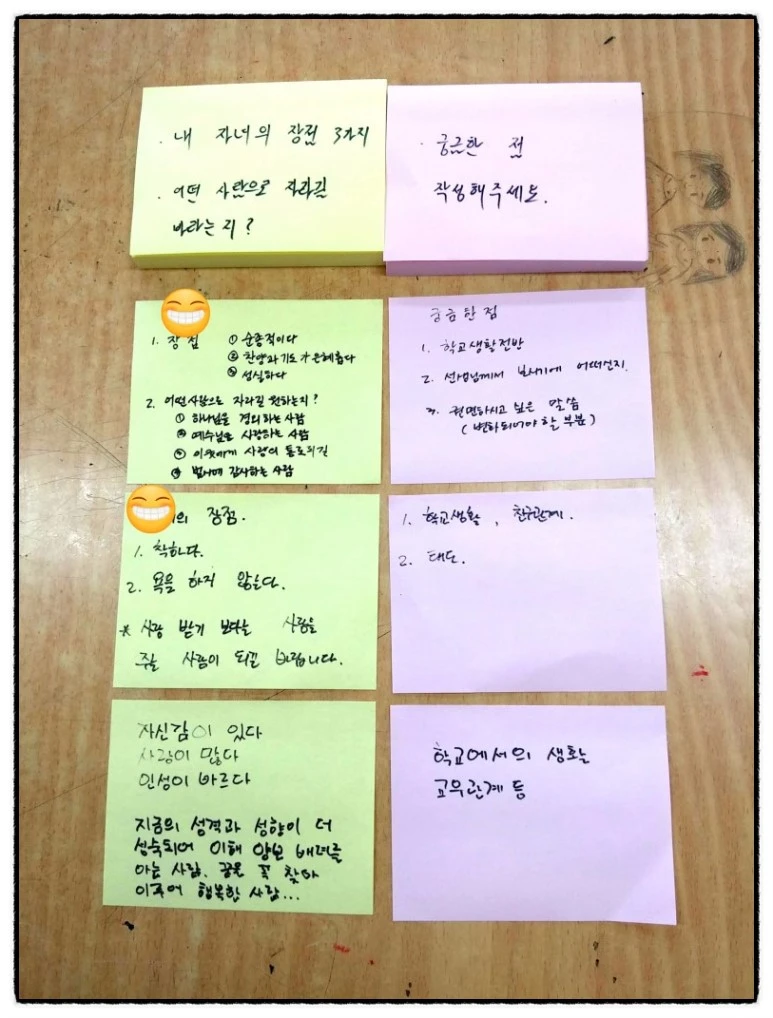 . 내 자녀의 장점 3가지
. 어떤 사람으로 자라길
바라는지?
. 궁금한 점
작성해주세요.
1. 장점 ① 순종적이다
② 찬양과 기도가 은혜롭다
③ 성실하다
2. 어떤사람으로 자라길 원하는지?
① 하나님을 경외하는 사람
② 예수님을 사랑하는 사람
③ 이웃에게 사랑의 통로되길
④ 범사에 감사하는 사람
궁금한점
1. 학교생활전반
2. 선생님께서 보시기에 어떠신지.
3. 권면하시고 싶은 말씀
(변화되어야 할 부분)
의 장점.
1. 착하다.
2. 욕을 하지 않는다.
* 사랑 받기 보다는 사랑을
주는 사람이 되길 바랍니다.
1. 학교생활, 친구관계.
2. 태도.
자신감이 있다
사랑이 많다
인성이 바르다
지금의 성격과 성향이 더
성숙되어 이해 양보 배려를
아는 사람. 꿈을 꼭 찾아
이루어 행복한 사람...
학교에서의 생활
교우관계 등